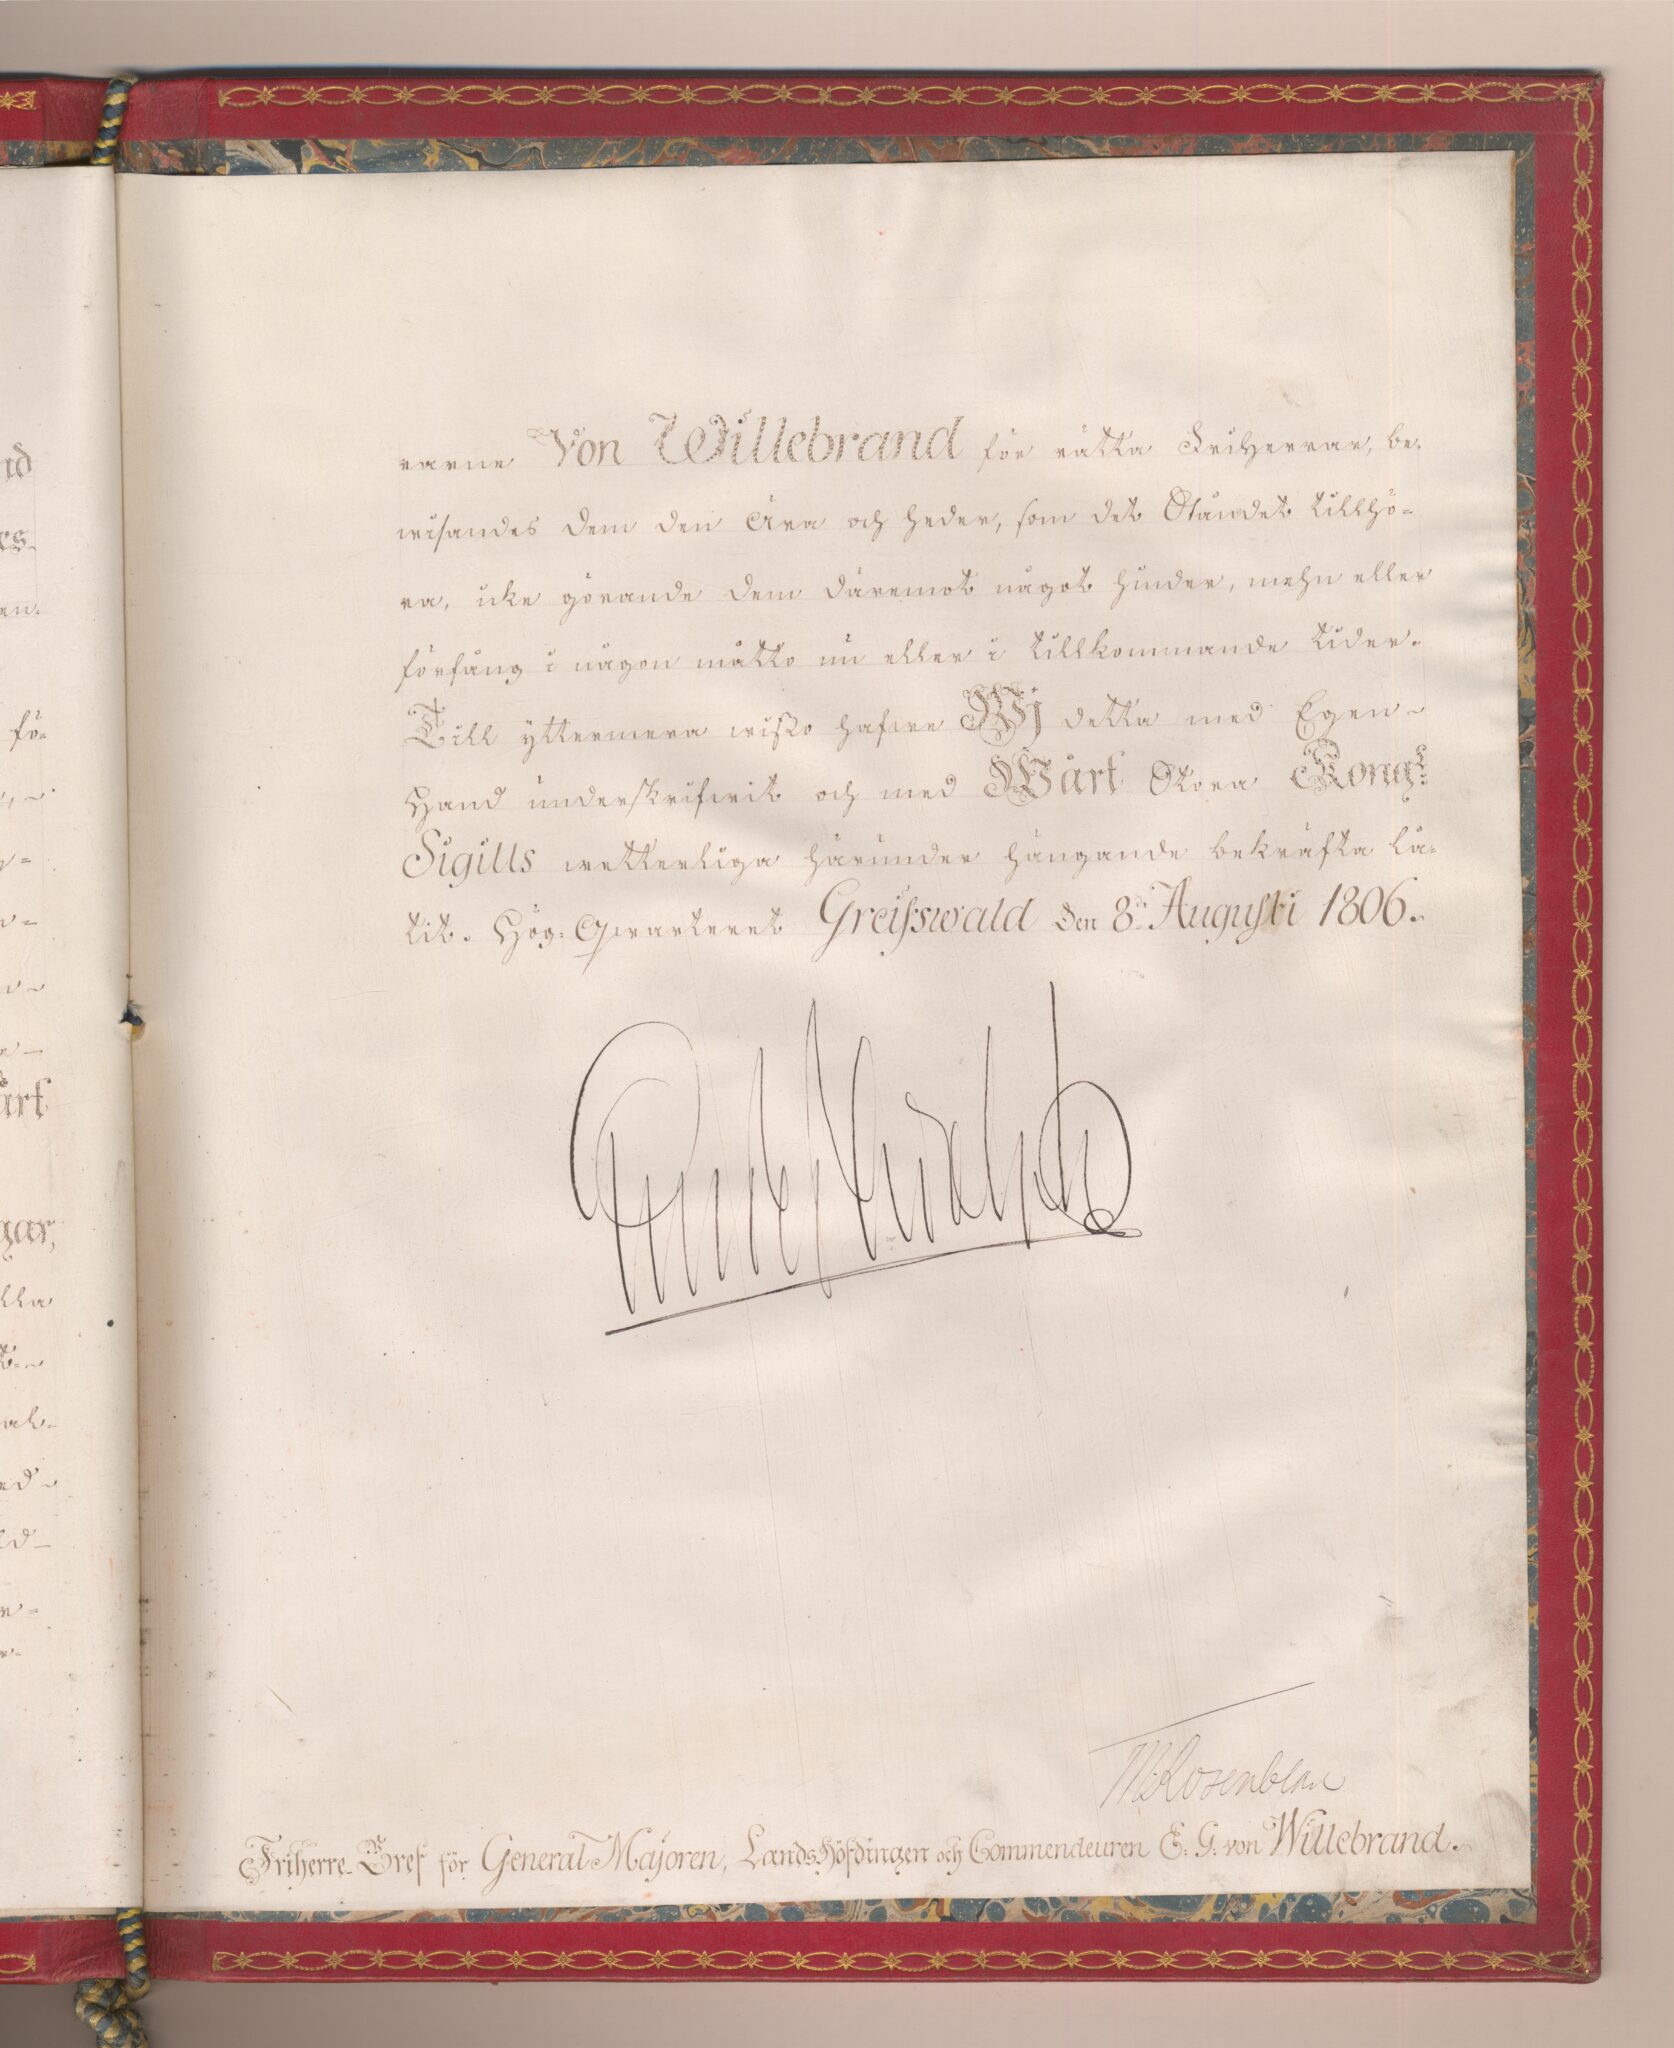 rarne Von Willebrand för rätta Friherrar, be-
wisandes dem den Ära och heder, som det Ståndet tillhö-
ra, icke görande dem däremot något hinder, mehn eller
förfång i någon måtto nu eller i tillkommande tider.
Till yttermera wisso hafwe Wj detta med Egen-
Hand underskrifwit och med Wårt Stora Kongl:
Sigills wetterliga härunder hängande bekräfta lå-
tit. Hög-Qwarteret Greifswald den 8de Augusti 1806.
Gustaf Adolph
M: Rosenblad
Friherre-Bref för General Majoren, Landshöfdingen och Commendeuren E. G. von Willebrand.
nd
en.
fö-
årt
gar,